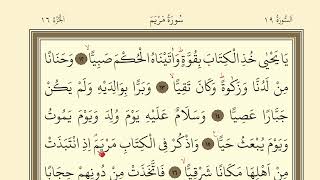 السُّورَةُ ١٩ سُورَةُ مَرْيَمَ الجُزْءُ ١٦
يَا يَحْيَى خُذِ الْكِتَابَ بِقُوَّةٍ وَآتَيْنَاهُ الْحُكْمَ صَبِيًّا ١٢ وَحَنَانًا
مِنْ لَدُنَّا وَزَكَوٰةً وَكَانَ تَقِيًّا ١٣ وَبَرًّا بِوَالِدَيْهِ وَلَمْ يَكُنْ
جَبَّارًا عَصِيًّا ١٤ وَسَلَامٌ عَلَيْهِ يَوْمَ وُلِدَ وَيَوْمَ يَمُوتُ
وَيَوْمَ يُبْعَثُ حَيًّا ١٥ وَاذْكُرْ فِي الْكِتَابِ مَرْيَمَ إِذِ انْتَبَذَتْ
مِنْ أَهْلِهَا مَكَانًا شَرْقِيًّا ١٦ فَاتَّخَذَتْ مِنْ دُونِهِمْ حِجَابًا